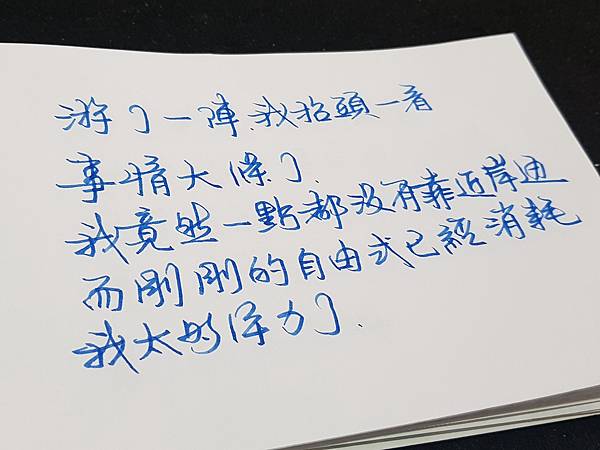 游了一陣,我抬頭一看
事情大條了.
我竟然一點都沒有靠近岸邊
而剛剛的自由式已經消耗
我太多体力了.